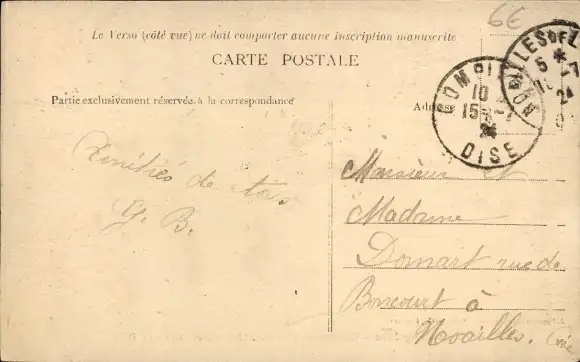 6€
Le Verso (côté vue) ne doit comporter aucune inscription manuscrite
CARTE POSTALE
Partie exclusivement réservée à la correspondance
Adresse
COMPIEGNE
10
15
24
OISE
5 *
24
Amitiés de
G. B.
Monsieur et
Madame
Domart rue de
Boncourt à
Noailles. (Oise